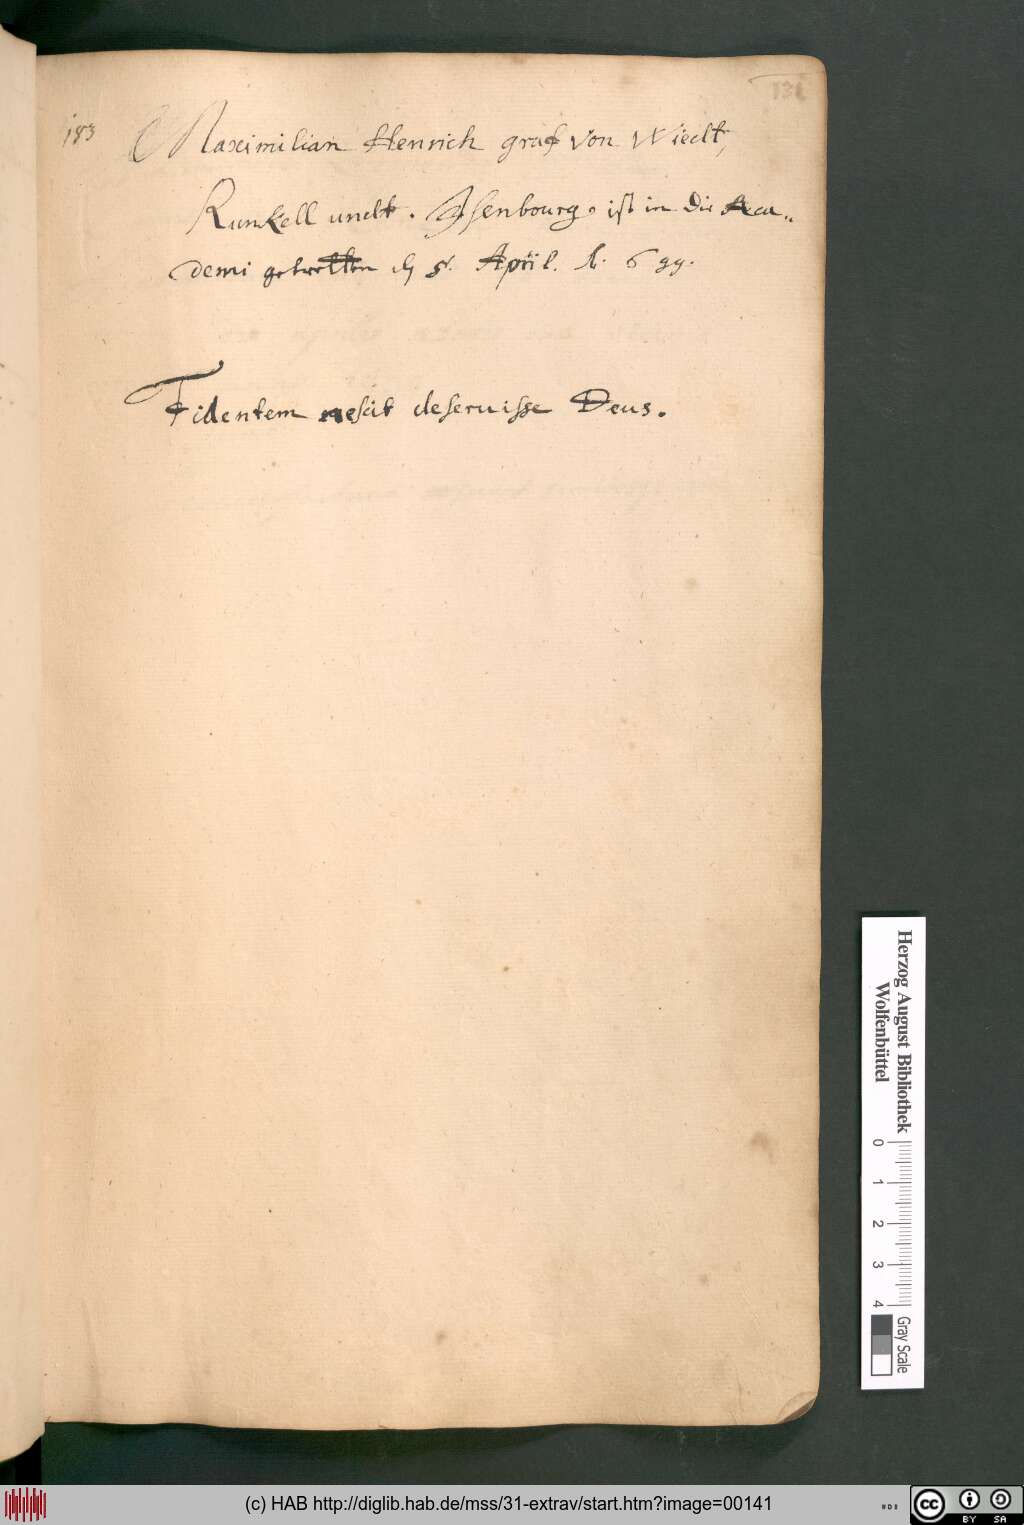 131
183 Maximilian Henrich graf von Wiedt,
Runkell undt. Isenbourg. ist in die Aca„
demi getretten d 5. April. A. 699.
Fidentem nescit deseruisse Deus.
Herzog August Bibliothek
Wolfenbüttel
0 1 2 3 4
Gray Scale
(c) HAB http://diglib.hab.de/mss/31-extrav/start.htm?image=00141
cc BY SA